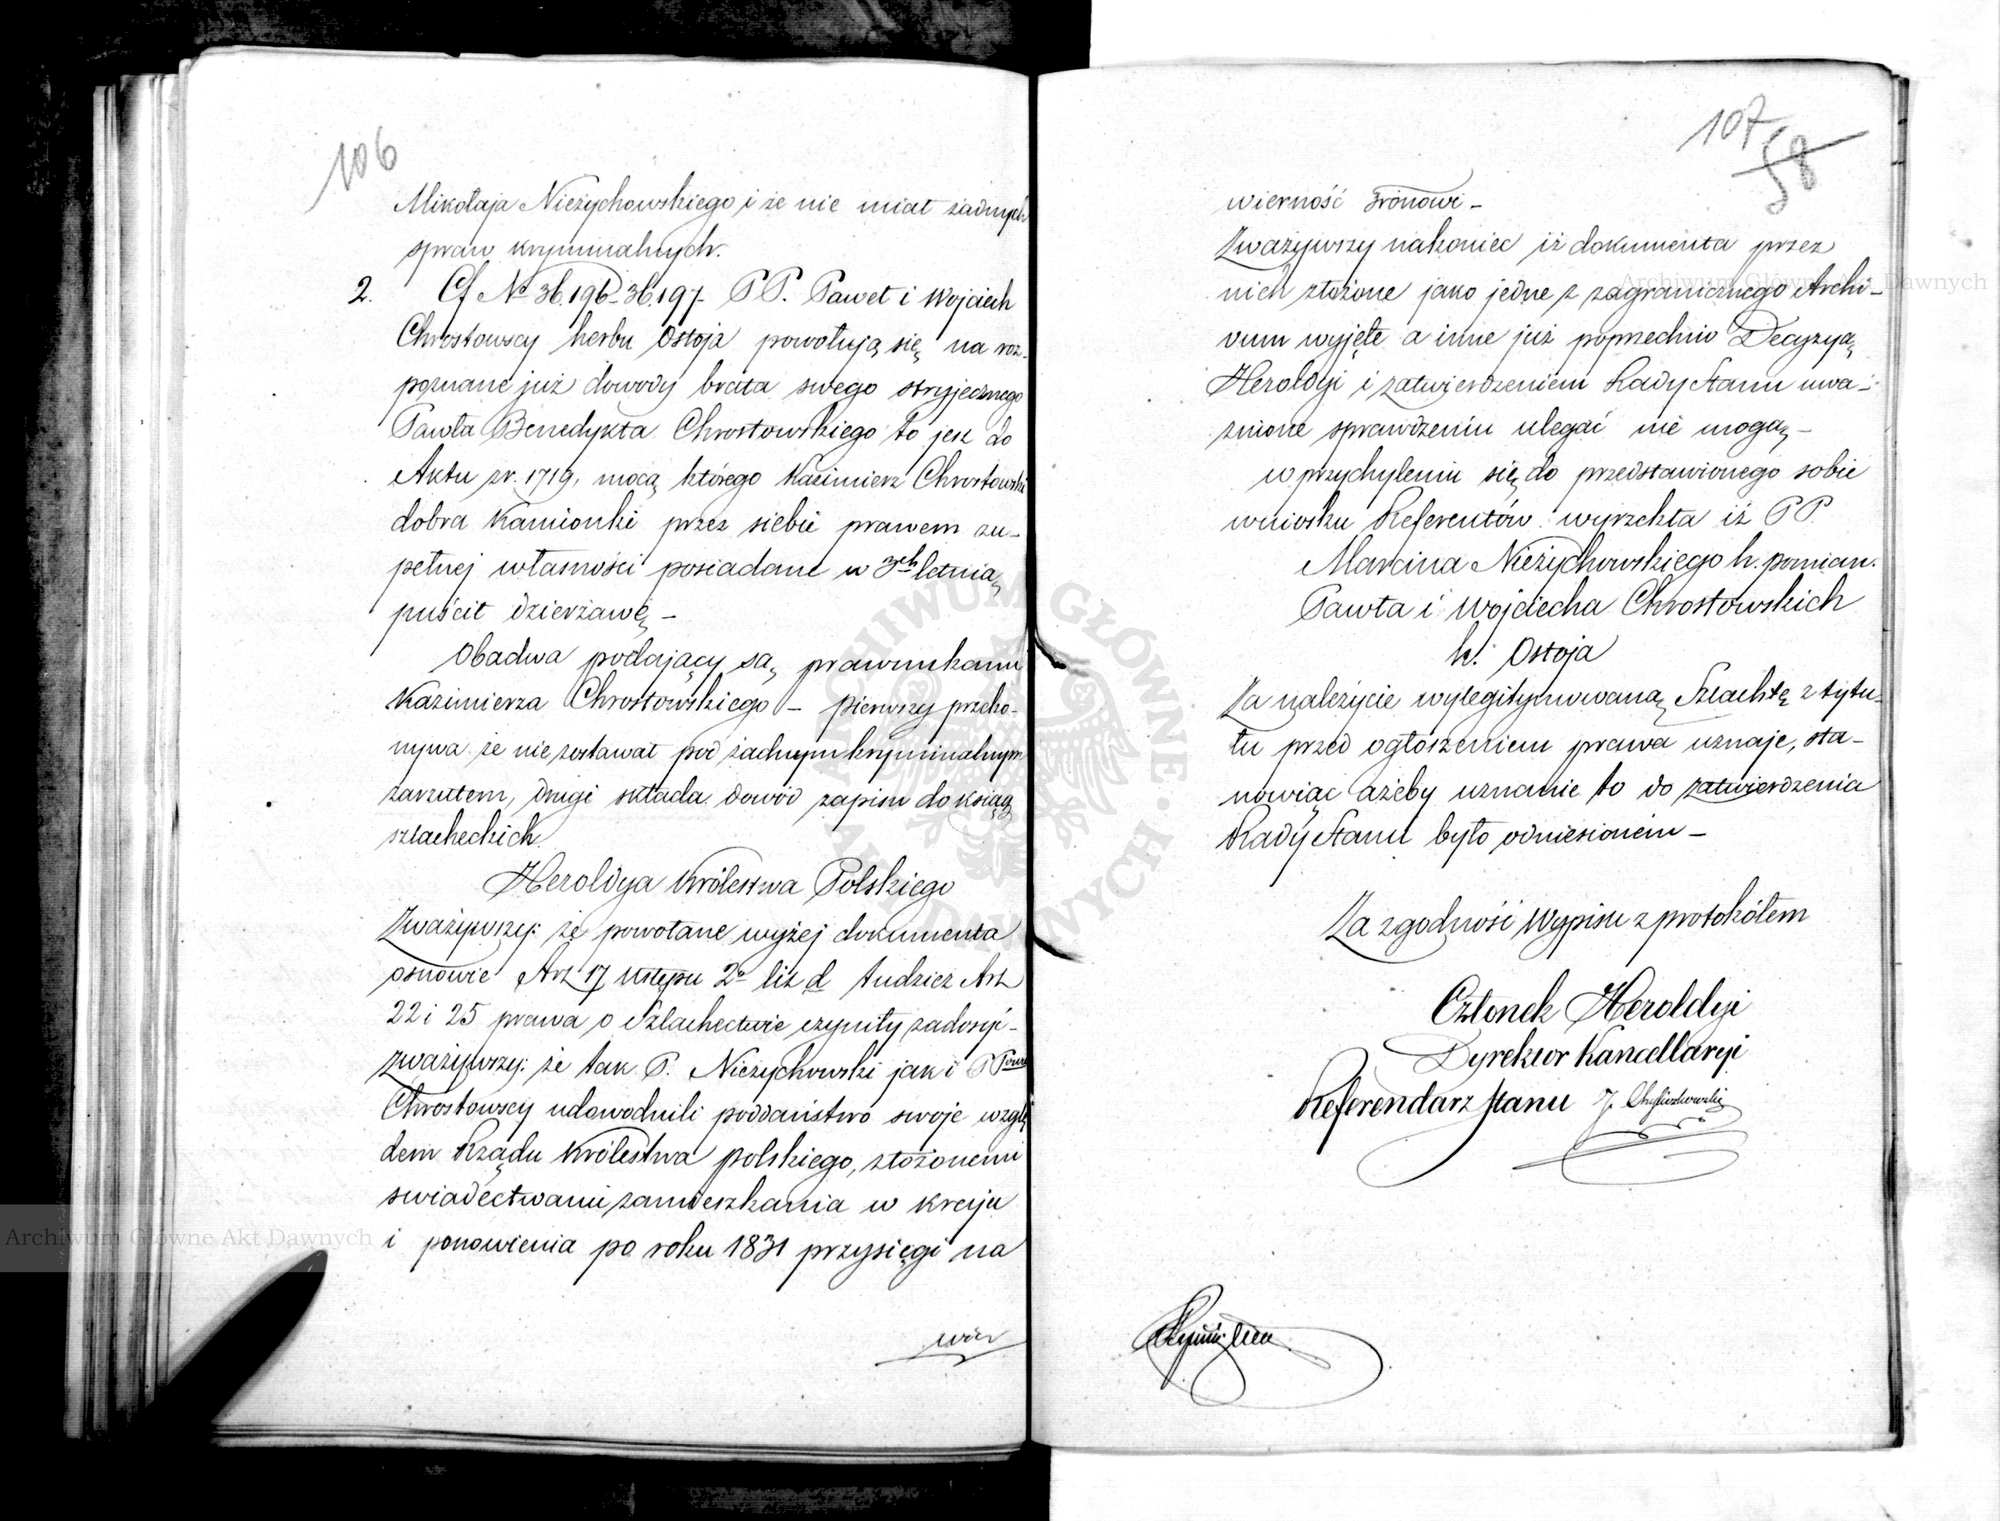 106
Mikołaja Nieżychowskiego i że nie miał żadnych
spraw kryminalnych.
2. Cf No 36.196-36.197. PP. Paweł i Wojciech
Chrostowscy herbu Ostoja powołują się na roz-
poznane już dowody brata swego stryjecznego
Pawła Benedykta Chrostowskiego to jest do
Aktu zr. 1719, mocą którego Kazimierz Chrostowski
dobra Kamionki przez siebie prawem zu-
pełnej własności posiadane w 3ch letnią
puścił dzierżawę –
Obadwa podający są prawnukami
Kazimierza Chrostowskiego – pierwszy przeko-
nywa że nie zostawał pod żadnym kryminalnym
zarzutem, drugi składa dowód zapisu do ksiąg
szlacheckich.
Heroldya Królestwa Polskiego
Zważywszy: że powołane wyżej dokumenta
osnowie Art 17 ustępu 2o lit d tudzież Art
22 i 25 prawa o Szlachectwie czyniły zadosyć –
zważywszy: że tak P. Nieżychowski jak i PP
Chrostowscy udowodnili poddaństwo swoje wzglę
dem Rządu Królestwa polskiego, złożonemi
swiadectwami zamieszkania w kraju
i ponowienia po roku 1831 przysięgi na
wier
107
58
wierność Tronowi –
Zważywszy nakoniec iż dokumenta przez
nich złożone jako jedne z zagranicznego Archi-
vum wyjęte a inne już poprzednio Decyzyą
Heroldyi i zatwierdzeniem Rady Stanu uwa-
żnione sprawdzeniu ulegać nie mogą –
w przychyleniu się do przedstawionego sobie
wniosku Referentów wyrzekła iż PP.
Marcina Nieżychowskiego h. pomian.
Pawła i Wojciecha Chrostowskich
h. Ostoja
Za należycie wylegitymowaną Szlachtę z tytu-
łu przed ogłoszeniem prawa uznaje, sta-
nowiąc ażeby uznanie to do zatwierdzenia
Rady Stanu było odniesionem –
Za zgodność Wypisu z protokółem
Członek Heroldyi
Dyrektor Kancellaryi
Referendarz Stanu J.
Archiwum Główne Akt Dawnych
Archiwum Główne Akt Dawnych
ARCHIWUM GŁÓWNE AKT DAWNYCH